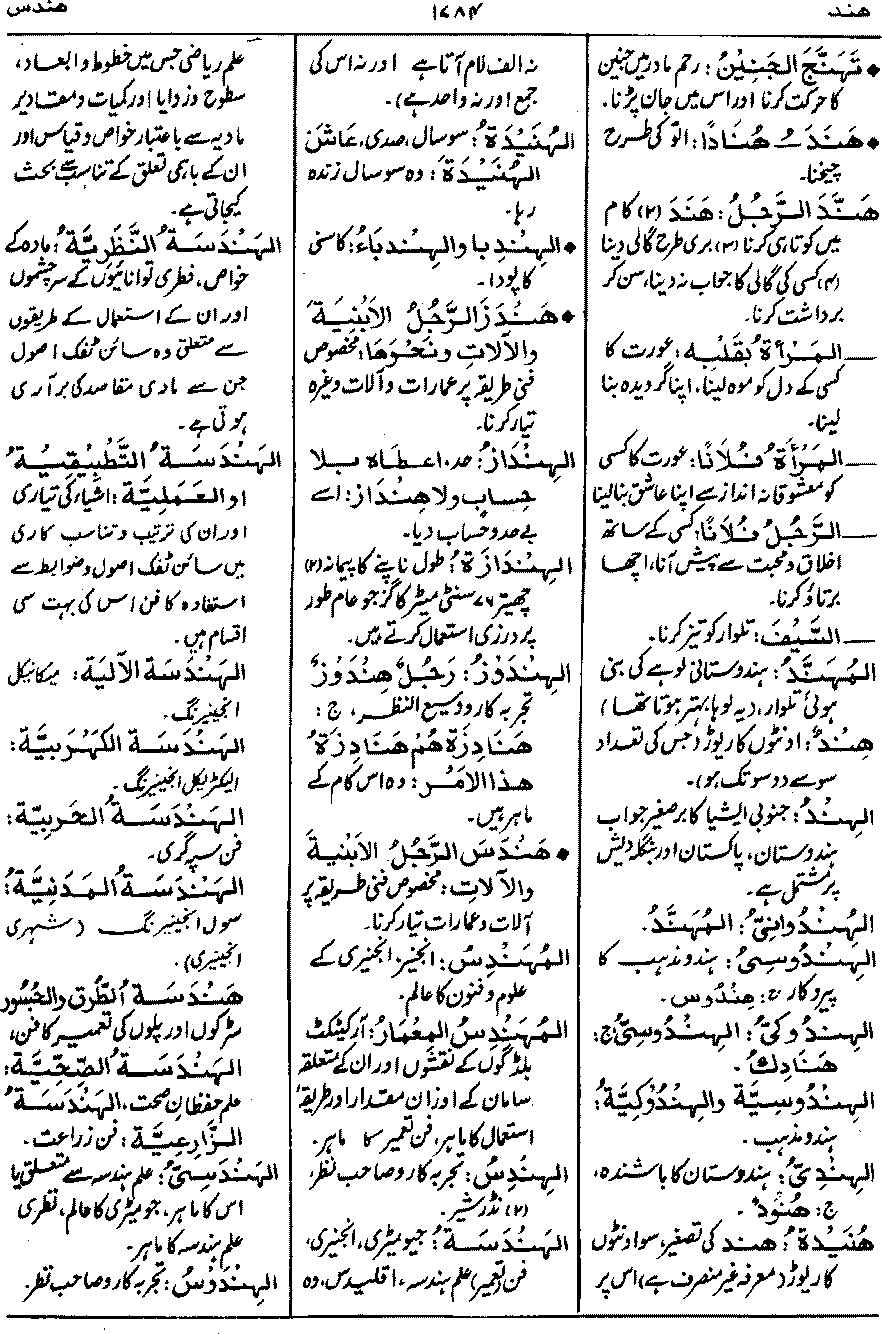 ھند
۱۷۸۴
ھندس
♦ تَهَنَّجَ الجَنِيْنُ: رحم مادر میں جنین
کا حرکت کرنا اور اس میں جان پڑنا۔
♦ هَنَدَ ـُ هُنَادًا: الّو کی طرح
چیخنا۔
هَنَّدَ الرَّجُلُ: هَنَدَ (۲) کام
میں کوتاہی کرنا (۳) بری طرح گالی دینا
(۴) کسی کی گالی کا جواب نہ دینا، سن کر
برداشت کرنا۔
ـــ المَرْأةُ بِقَلبِه: عورت کا
کسی کے دل کو موہ لینا، اپنا گرویدہ بنا
لینا۔
ـــ المَرْأَةُ فُلَانًا: عورت کا کسی
کو معشوقانہ انداز سے اپنا عاشق بنا لینا
ـــ الرَّجُلُ فُلَانًا: کسی کے ساتھ
اخلاق و محبت سے پیش آنا، اچھا
برتاؤ کرنا۔
ـــ السَّيْفَ: تلوار کو تیز کرنا۔
المُهَنَّدُ: ہندوستانی لوہے کی بنی
ہوئی تلوار، (یہ لوہا بہتر ہوتا تھا)
هِنْدٌ: اونٹوں کا ریوڑ (جس کی تعداد
سو سے دو سو تک ہو)۔
الهِنْدُ: جنوبی ایشیا کا برصغیر جواب
ہندوستان، پاکستان اور بنگلہ دیش
پر مشتمل ہے۔
الهُنْدُوانِيُّ: المُهَنَّدُ۔
الهِنْدُوسِيُّ: ہندو مذہب کا
پیروکار ج: هِنْدُوس۔
الهِنْدُوكِيُّ: الهِنْدُوسِيُّ ج:
هَنَادِكُ۔
الهِنْدُوسِيَّة والهِنْدُوكِيَّةُ:
ہندو مذہب۔
الهِنْدِيُّ: ہندوستان کا باشندہ،
ج: هُنُودٌ۔
هُنَيْدَةُ: هند کی تصغیر، سو اونٹوں
کا ریوڑ (معرفہ غیر منصرف ہے) اس پر
نہ الف لام آتا ہے اور نہ اس کی
جمع اور نہ واحد ہے)۔
الهُنَيْدَةُ: سو سال، صدی، عَاشَ
الهُنَيْدَةَ: وہ سو سال زندہ
رہا۔
♦ الهِنْدِبا والهِنْدِباءُ: کاسنی
کا پودا۔
♦ هَنْدَزَ الرَّجُلُ الأَبْنِيةَ
والآلاتِ ونَحْوَهَا: مخصوص
فنی طریقہ پر عمارات و آلات وغیرہ
تیار کرنا۔
الهِنْدَازُ: حد، اعطاه بلا
حسابٍ ولا هِنْداز: اسے
بے حد و حساب دیا۔
الهِنْدَازَةُ: طول ناپنے کا پیمانہ (۲)
چھہتر ۷۶ سنٹی میٹر کا گز جو عام طور
پر درزی استعمال کرتے ہیں۔
الهِنْدَوْزُ: رَجُلٌ هِنْدَوْزٌ
تجربہ کار و وسیع النظر، ج:
هَنَادِزَة هُمْ هَنَادِزَةُ
هذا الامْرِ: وہ اس کام کے
ماہر ہیں۔
♦ هَنْدَسَ الرَّجُلُ الأَبْنِيةَ
والآلاتِ: مخصوص فنی طریقہ پر
آلات و عمارات تیار کرنا۔
المُهَنْدِسُ: انجنیر، انجنیری کے
علوم و فنون کا عالم۔
المُهَنْدِسُ المِعْمَارُ: آرکیٹکٹ
بلڈنگوں کے نقشوں اور ان کے متعلقہ
سامان کے اوزان مقدار اور طریقۂ
استعمال کا ماہر، فن تعمیر کا ماہر۔
الهِنْدِسُ: تجربہ کار و صاحب نظر،
(۲) نڈر شیر۔
الهَنْدَسَةُ: جیومیٹری، انجنیری،
فن (تعمیر) علم ہندسہ، اقلیدس، وہ
علم ریاضی جس میں خطوط و ابعاد،
سطوح و زوایا اور کمیات و مقادیر
مادیہ سے باعتبار خواص و قیاس اور
ان کے باہمی تعلق کے تناسب سے بحث
کی جاتی ہے۔
الهَنْدَسَةُ النَّظَرِيَّةُ: مادہ کے
خواص، فطری توانائیوں کے سرچشموں
اور ان کے استعمال کے طریقوں
سے متعلق وہ سائن ٹفک اصول
جن سے مادی مقاصد کی برآری
ہوتی ہے۔
الهَنْدَسَةُ التَّطْبِيقِيةُ
او العَمَلِيَّة: اشیاء کی تیاری
اور ان کی ترتیب و تناسب کاری
میں سائن ٹفک اصول و ضوابط سے
استفادہ کا فن اس کی بہت سی
اقسام ہیں۔
الهَنْدَسَة الآلية: میکانیکل
انجینیرنگ۔
الهَنْدَسَة الكَهْرَبِيَّة:
الیکٹریکل انجینیرنگ۔
الهَنْدَسَةُ الحَربِيَّة:
فن سپہ گری۔
الهَنْدَسَةُ المَدَنِيَّةُ:
سول انجینیرنگ (شہری
انجینیری)۔
هَنْدَسَة الطُّرُق والجُسُور
سڑکوں اور پلوں کی تعمیر کا فن،
الهَنْدَسَةُ الصِّحِّيَّة:
علم حفظان صحت، الهَنْدَسَةُ
الزِّارعِيَّة: فن زراعت۔
الهَنْدَسِيُّ: علم ہندسہ سے متعلق یا
اس کا ماہر، جومیٹری کا عالم، نظری
علم ہندسہ کا ماہر۔
الهِنْدَوْسُ: تجربہ کار و صاحب نظر۔